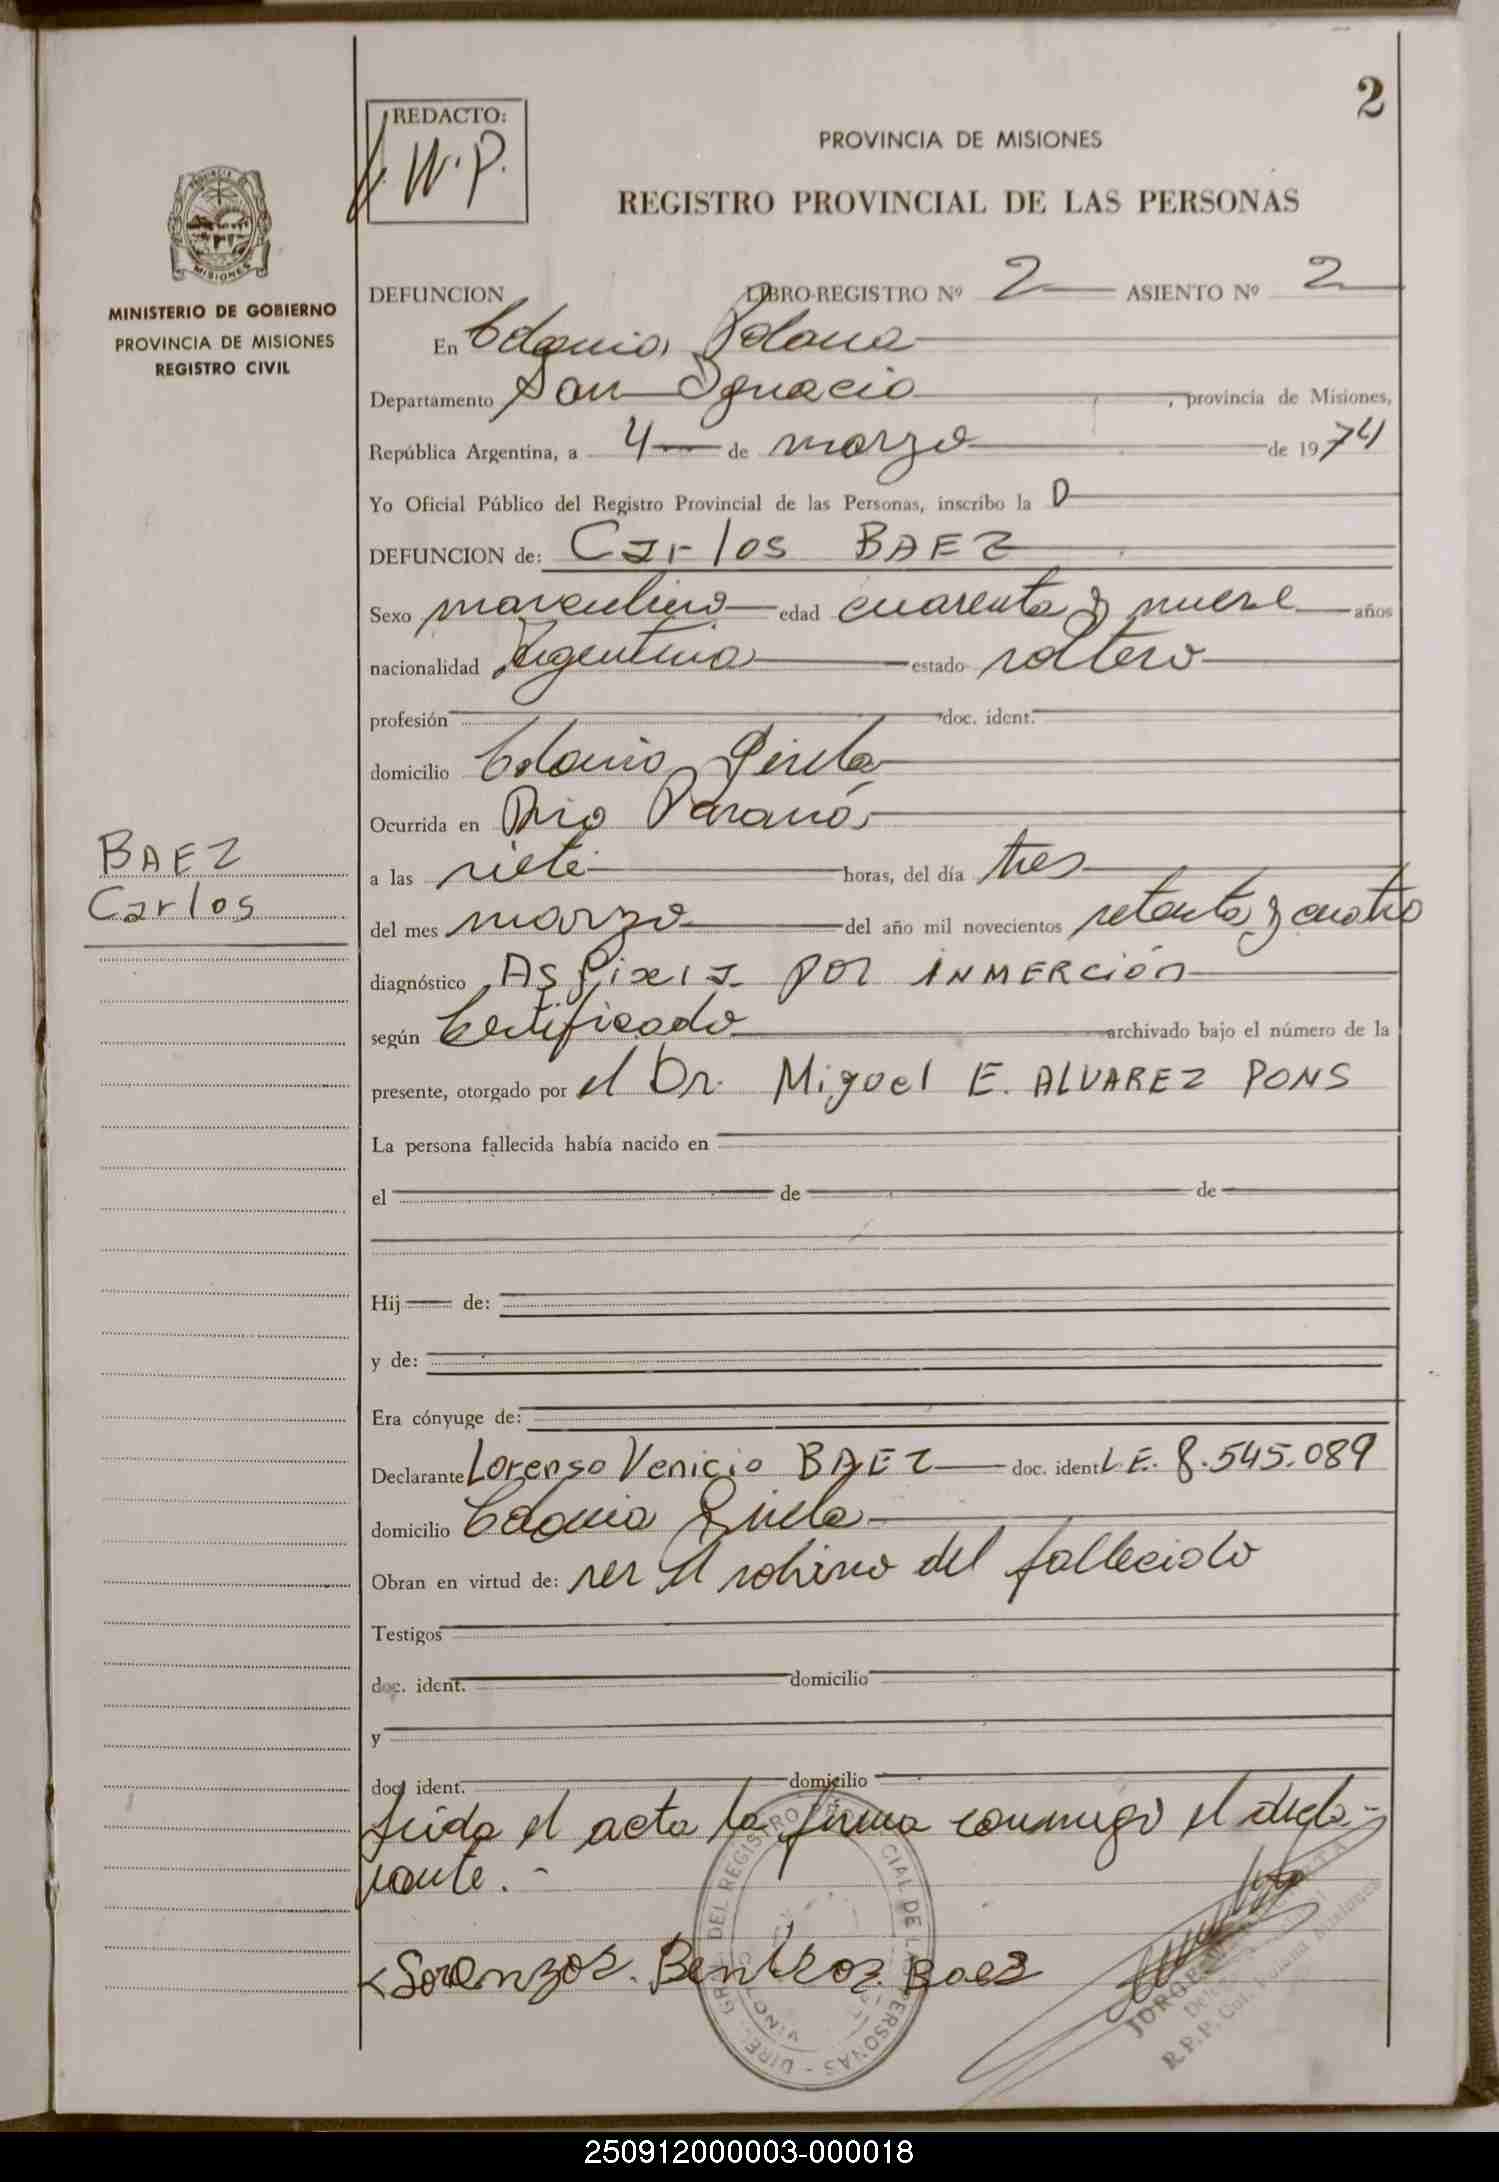 2
REDACTO:
W.P.
PROVINCIA DE MISIONES
REGISTRO PROVINCIAL DE LAS PERSONAS
MISIONES
MINISTERIO DE GOBIERNO
PROVINCIA DE MISIONES
REGISTRO CIVIL
DEFUNCION LIBRO-REGISTRO Nº 2 ASIENTO Nº 2
En Colonia Polana
Departamento San Ignacio, provincia de Misiones,
República Argentina, a 4 de marzo de 1974
Yo Oficial Público del Registro Provincial de las Personas, inscribo la D
DEFUNCION de: Carlos BAEZ
Sexo masculino edad cuarenta y nueve años
nacionalidad Argentina estado soltero
profesión doc. ident.
domicilio Colonia Gisela
Ocurrida en Rio Paraná
a las siete horas, del día tres
BAEZ
Carlos
del mes marzo del año mil novecientos setenta y cuatro
diagnóstico Asfixia por inMERCión
según Certificado archivado bajo el número de la
presente, otorgado por el Dr. Miguel E. ALVAREZ PONS
La persona fallecida había nacido en
el de de
Hij de:
y de:
Era cónyuge de:
Declarante Lorenso Venicio BAEZ doc. ident L.E. 8.545.089
domicilio Colonia Gisela
Obran en virtud de: ser el sobrino del fallecido
Testigos
doc. ident. domicilio
y
doc. ident. domicilio
Leida el acta la firma conmigo el decla-
rante.-
DIREC. GRAL. DEL REGISTRO CIAL DE LAS PERSONAS
Baez
JORGE
R.P.P. Col. Polana Misiones
250912000003-000018